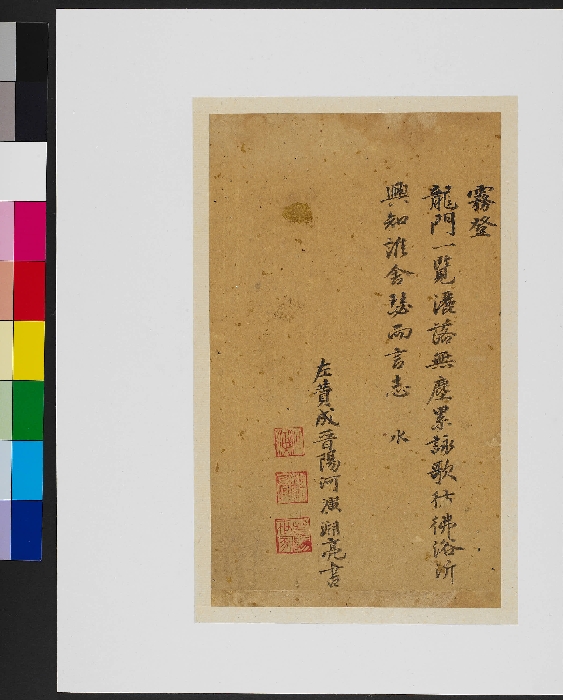 霧登
龍門一覽濩落無塵累詠歌彷彿浴沂
興知誰舍瑟而言志 水
左贊成晉陽河演淵亮書